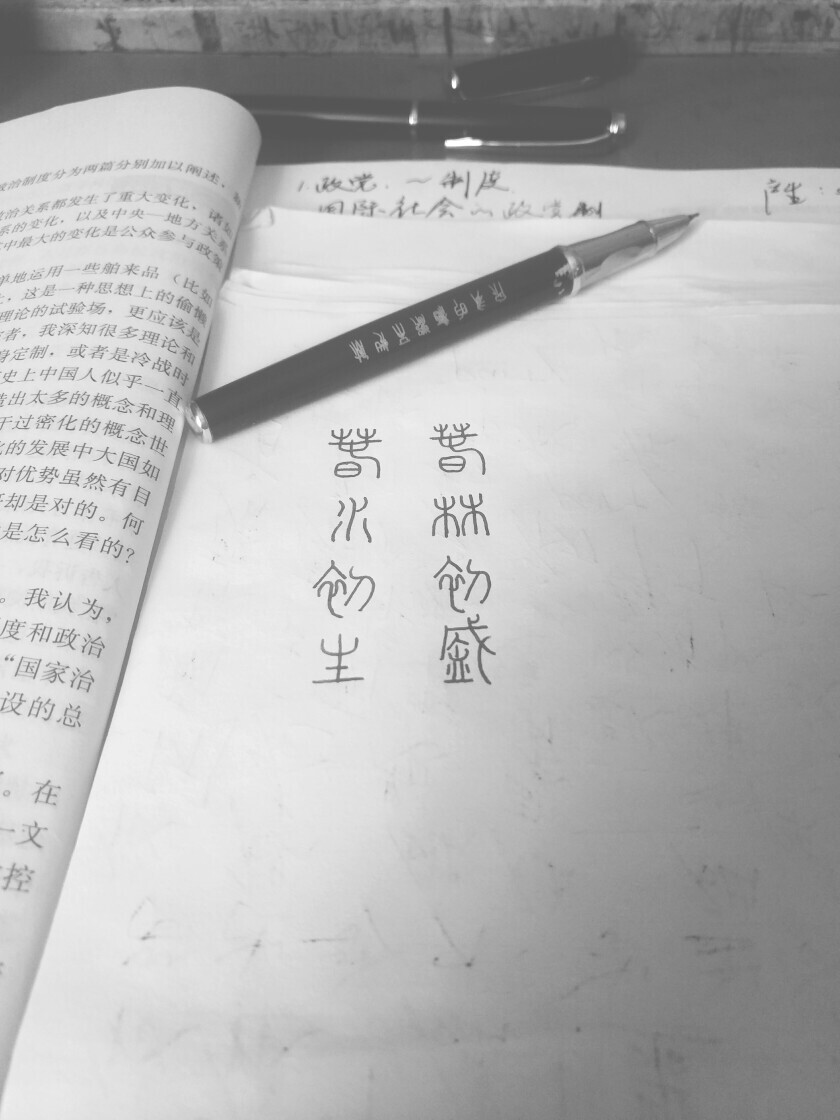 治制度分为两篇分别加以阐述，
治关系都发生了重大变化，诸如
系的变化，以及中央—地方关系
中最大的变化是公众参与政策
单地运用一些舶来品（比如
，这是一种思想上的偷懒
理论的试验场，更应该是
者，我深知很多理论和
身定制，或者是冷战时
史上中国人似乎一直
造出太多的概念和理
于过密化的概念世
化的发展中大国如
对优势虽然有目
却是对的。何
是怎么看的？
。我认为，
度和政治
“国家治
设的总
。在
一文
控
1.政党、~制度
国际社会的政党制
产生：
春水初生
春林初盛